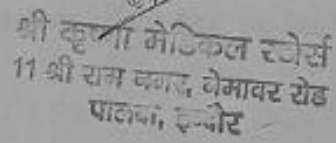 श्री कृष्णा मेडिकल स्टोर्स
11 श्री राम नगर, नेमावर रोड
पालदा, इन्दौर